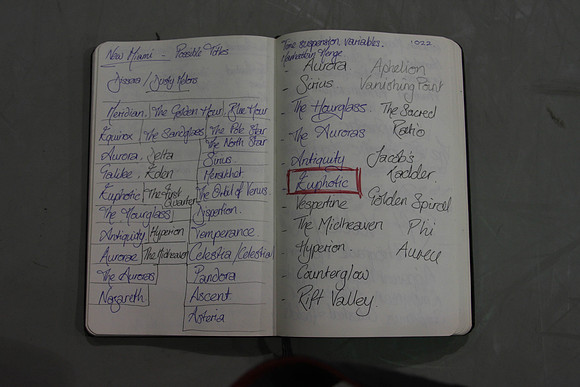 New Miami - Possible Titles
/ Dusty Motors
Meridian, The Golden Hour, Blue Hour
Equinox The Sandglass The Pole Star
The North Star
Aurora, Delta Sirius
Galilee, Eden Merakhet
Euphotic The First Quarter The Orbit of Venus
The Hourglass Dispersion.
Antiquity Hyperion Temperance
Aurorae The Midheaven Celestra / Celestial
The Auroras Pandora
Nazareth Ascent
Asteria
Time suspension variables. 1022
- Aurora Aphelion
- Sirius Vanishing Point
- The Hourglass. The Sacred
- The Auroras Ratio
- Antiquity Jacob's
- Euphotic Ladder.
- Vespertine Golden Spiral
- The Midheaven Phi
- Hyperion. Aureu
- Counterglow
- Rift Valley.